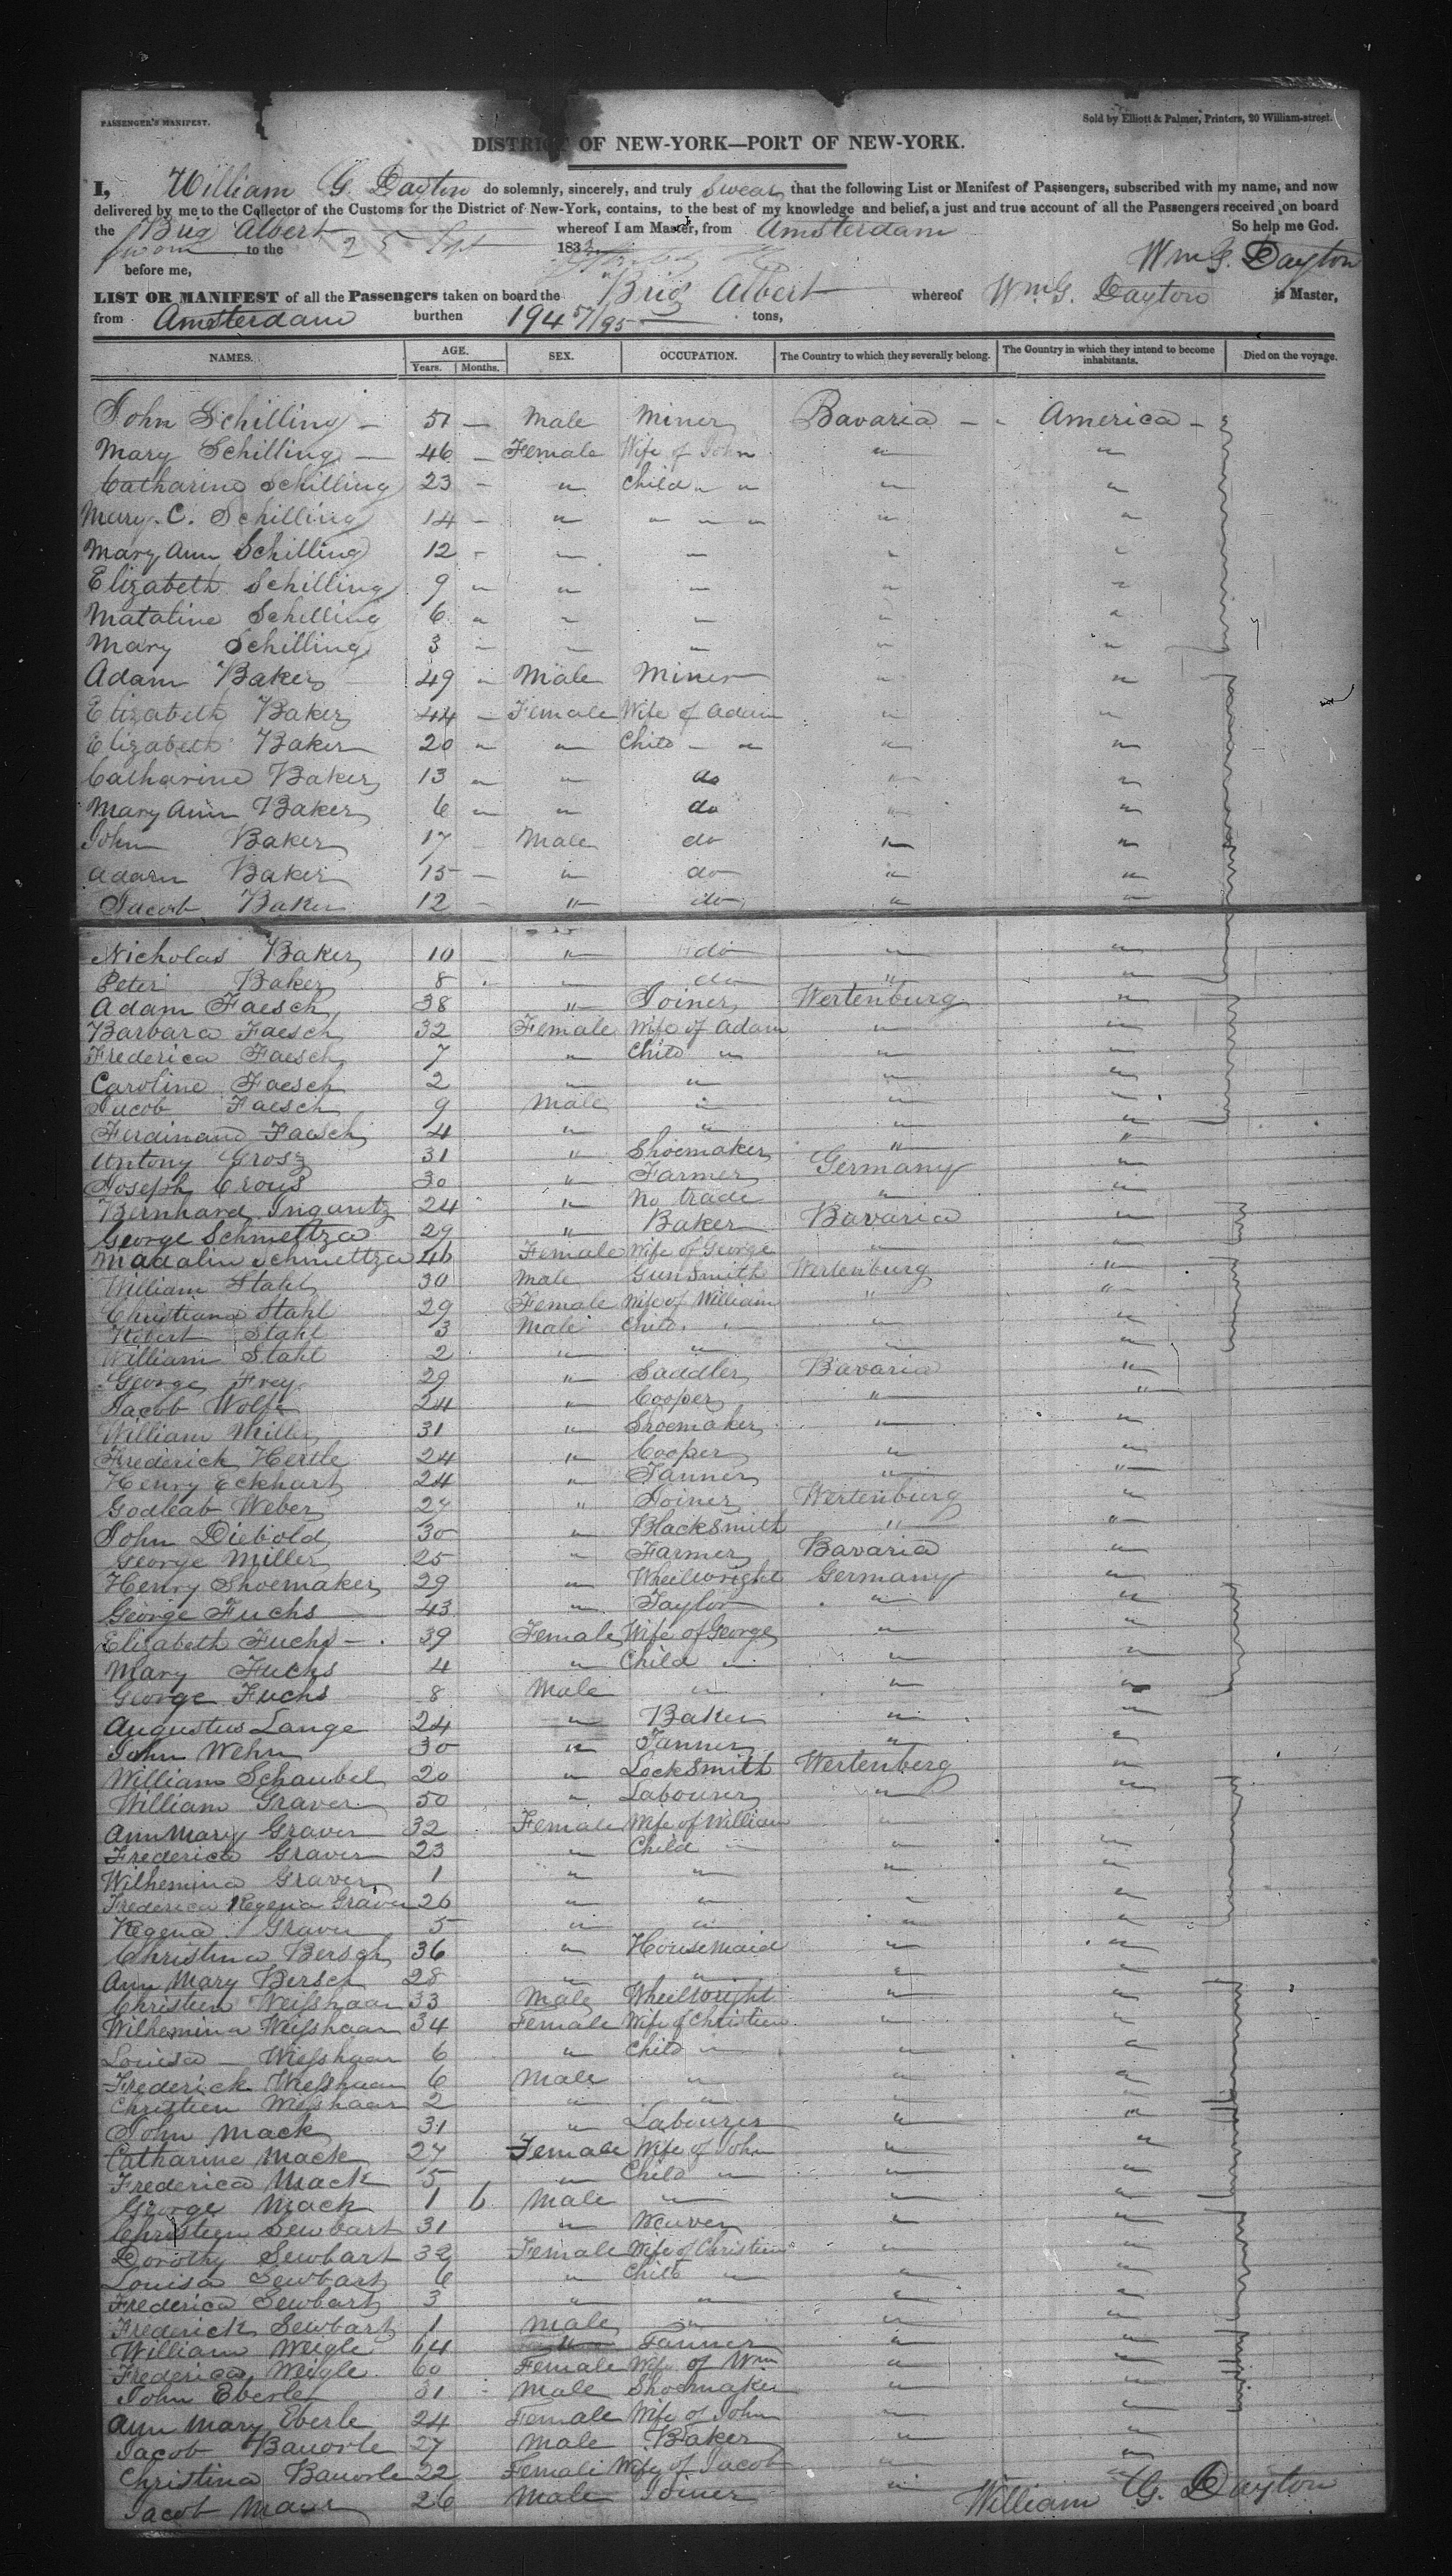 PASSENGER'S MANIFEST.
Sold by Elliott & Palmer, Printers, 20 William-street.
DISTRICT OF NEW-YORK—PORT OF NEW-YORK.
I, William G. Dayton do solemnly, sincerely, and truly swear that the following List or Manifest of Passengers, subscribed with my name, and now
delivered by me to the Collector of the Customs for the District of New-York, contains, to the best of my knowledge and belief, a just and true account of all the Passengers received on board
the Brig Albert whereof I am Master, from Amsterdam So help me God.
sworn to the 25 Sept 183
before me, Wm G. Dayton
LIST OR MANIFEST of all the Passengers taken on board the Brig Albert whereof Wm G. Dayton is Master,
from Amsterdam burthen 194 57/95 tons,
NAMES. AGE. Years. Months. SEX. OCCUPATION. The Country to which they severally belong. The Country in which they intend to become inhabitants. Died on the voyage.
John Schilling — 51 — Male Miner Bavaria — America —
Mary Schilling — 46 — Female Wife of John " "
Catharine Schilling 23 — " Child " " " "
Mary C. Schilling 14 — " " " " " "
Mary Ann Schilling 12 " " " " "
Elizabeth Schilling 9 " " " " "
Mataline Schilling 6 " " " " "
Mary Schilling 3 " " " " "
Adam Baker 49 " Male Miner " "
Elizabeth Baker 44 — Female Wife of Adam " "
Elizabeth Baker 20 " " Child " " " "
Catharine Baker 13 " " do " "
Mary Ann Baker 6 " " do " "
John Baker 17 Male do " "
Adam Baker 15 — " do " "
Jacob Baker 12 " do " "
Nicholas Baker 10 " do " "
Peter Baker 8 " do " "
Adam Faesch 38 " Joiner Wertenburg "
Barbara Faesch 32 Female Wife of Adam " "
Frederica Faesch 7 " Child " " "
Caroline Faesch 2 " " " "
Jacob Faesch 9 Male " " "
Ferdinand Faesch 4 " " " "
Antony Grosz 31 " Shoemaker " "
Joseph Crous 30 " Farmer Germany "
Bernhard Ingantz 24 " No trade " "
George Schmeltza 29 " Baker Bavaria "
Madalin Schmeltza 46 Female Wife of George " "
William Stahl 30 Male Gunsmith Wertenburg "
Christiana Stahl 29 Female Wife of William " "
Robert Stahl 3 Male Child " " "
William Stahl 2 " " " "
George Frey 29 " Saddler Bavaria "
Jacob Wolfe 24 " Cooper " "
William Miller 31 " Shoemaker " "
Frederick Hertle 24 " Cooper " "
Henry Eckhart 24 " Tanner " "
Godleab Weber 27 " Joiner Wertenburg "
John Diebold 30 " Blacksmith " "
George Miller 25 " Farmer Bavaria "
Henry Shoemaker 29 " Wheelwright Germany "
George Fuchs 43 " Taylor " "
Elizabeth Fuchs 39 Female Wife of George " "
Mary Fuchs 4 " Child " " "
George Fuchs 8 Male " " "
Augustus Lange 24 " Baker " "
John Wehn 30 " Tanner " "
William Schaubel 20 " Locksmith Wertenberg "
William Graver 50 " Labourer " "
Ann Mary Graver 32 Female Wife of William " "
Frederica Graver 23 " Child " " "
Wilhemina Graver 1 " " " "
Frederica Regena Graver 26 " " " "
Regena Graver 5 " " " "
Christina Bersch 36 " Housemaid " "
Ann Mary Bersch 28 " " " "
Christien Weisshaar 33 Male Wheelwright " "
Wilhemina Weisshaar 34 Female Wife of Christien " "
Louisa Wiesshaar 6 " Child " " "
Frederick Wiesshaar 6 Male " " "
Christien Wiesshaar 2 " " " "
John Mack 31 " Labourer " "
Catharine Mack 27 Female Wife of John " "
Frederica Mack 5 " Child " " "
George Mack 1 6 Male " " "
Christien Sewbart 31 " Weaver " "
Dorothy Sewbart 32 Female Wife of Christien " "
Louisa Sewbart 6 " Child " " "
Frederica Sewbart 3 " " " "
Frederick Sewbart 1 Male " " "
William Weigle 64 Tanner " "
Frederica Weigle 60 Female Wife of Wm " "
John Eberle 31 Male Shoemaker " "
Ann Mary Eberle 24 Female Wife of John " "
Jacob Bauorle 27 Male Baker " "
Christina Bauorle 22 Female Wife of Jacob " "
Jacob Maur 26 Male Joiner " "
William G. Dayton